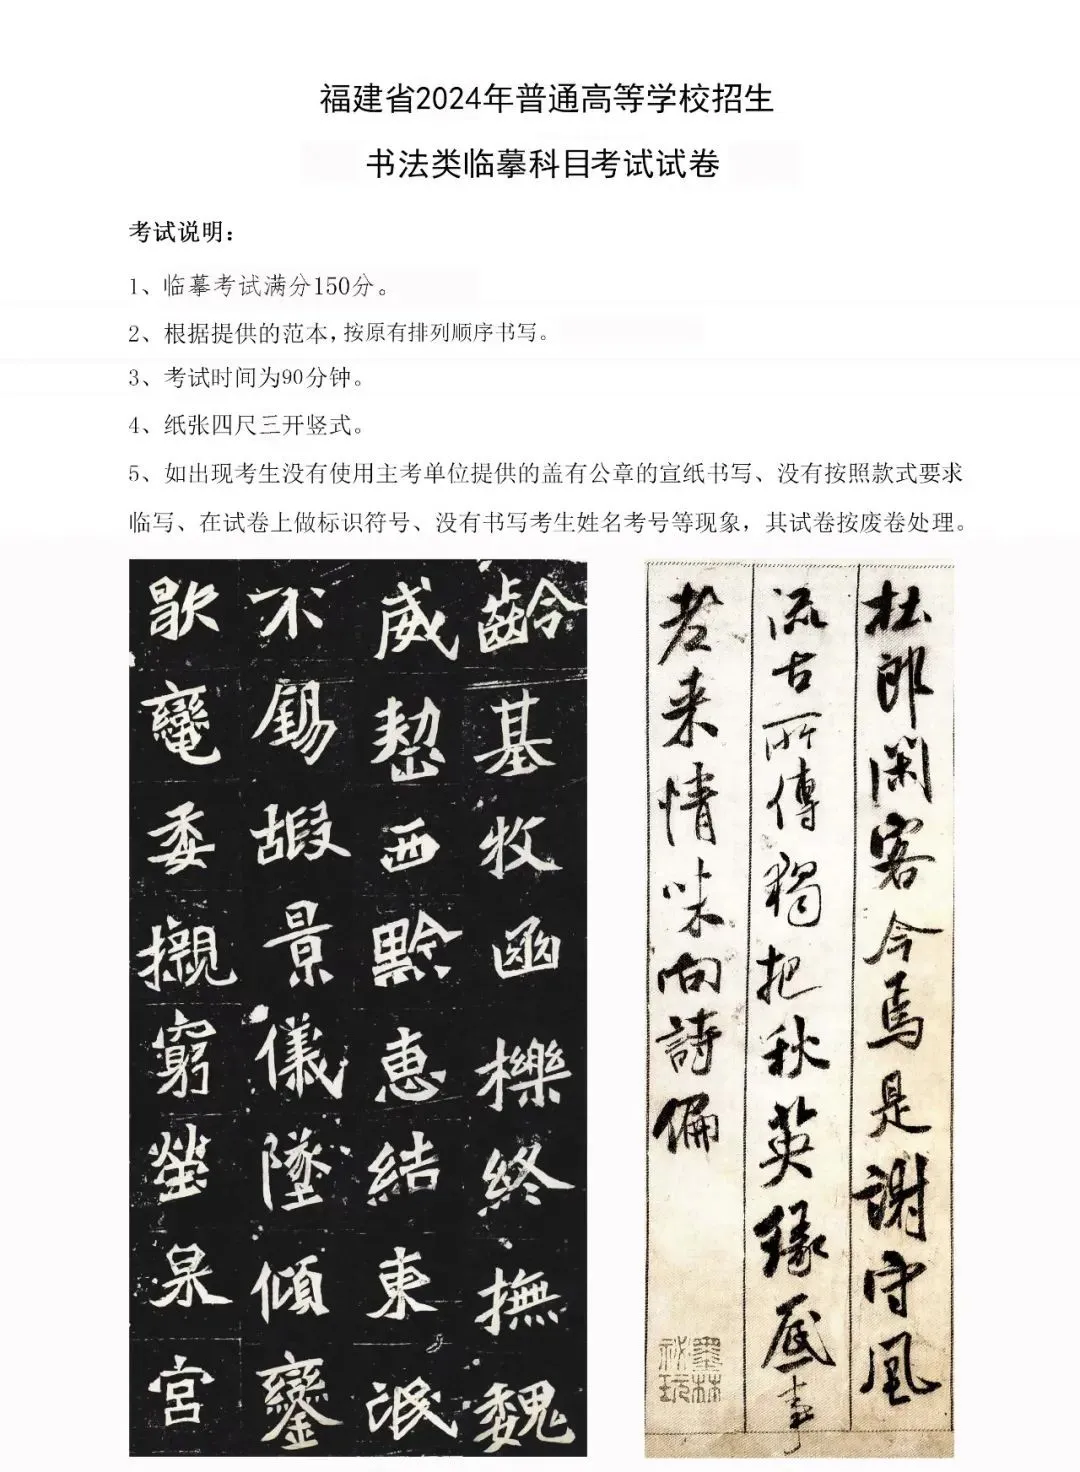 福建省2024年普通高等学校招生
书法类临摹科目考试试卷
考试说明：
1、临摹考试满分150分。
2、根据提供的范本，按原有排列顺序书写。
3、考试时间为90分钟。
4、纸张四尺三开竖式。
5、如出现考生没有使用主考单位提供的盖有公章的宣纸书写、没有按照款式要求
临写、在试卷上做标识符号、没有书写考生姓名考号等现象，其试卷按废卷处理。
齡基牧函櫟終撫魏
威西黔惠結東泯
不錫嘏景儀墜傾鑾
歇委櫬窮塋杲宮
杜郎閑客今焉是謝守風
流古所傳獨把秋英緣底事
老来情味向詩偏
墨林
秘玩